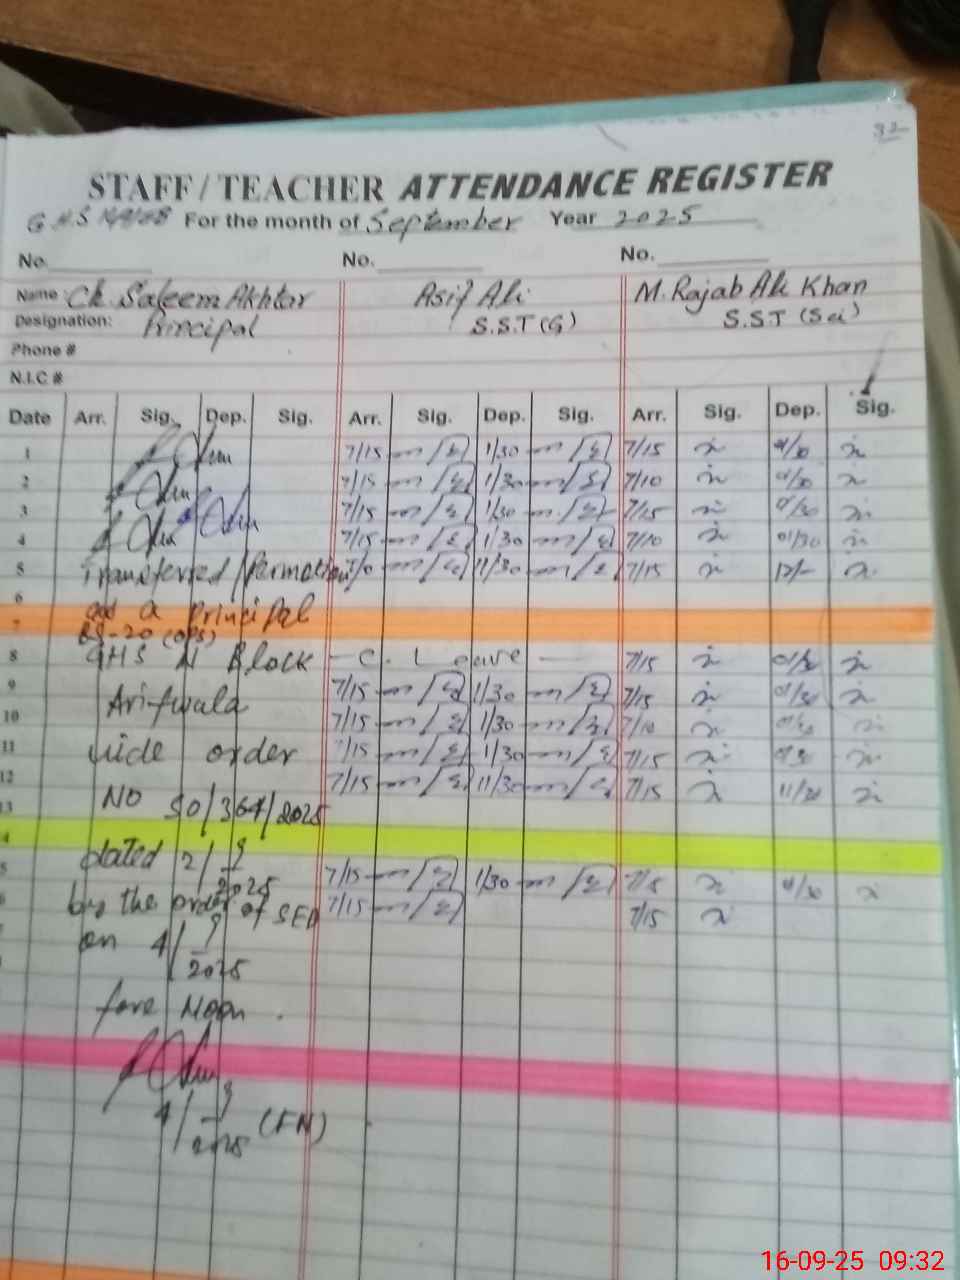 32
STAFF / TEACHER ATTENDANCE REGISTER
G.H.S For the month of September Year 2025
No. No. No.
Name: Ch. Saleem Akhtar Asif Ali M. Rajab Ali Khan
Designation: Principal S.S.T (G) S.S.T (Sci)
Phone #
N.I.C #
Date Arr. Sig. Dep. Sig. Arr. Sig. Dep. Sig. Arr. Sig. Dep. Sig.
1 7/15 1/30 7/15 01/30
2 7/15 1/30 7/10 01/30
3 7/15 1/30 7/15 01/30
4 7/15 1/30 7/10 01/30
5 Transferred / 11/30 7/15 12/-
6 as a Principal
7 BS-20 (OPS)
8 GHS N Block - C. Leave - 7/15
9 Arifwala 7/15 1/30 7/15
10 7/15 1/30 7/10
11 vide order 7/15 1/30 7/15
12 7/15 11/30 7/15 11/30
13 NO SO/364/2025
4
dated 2/9
2025
5 7/15 1/30 7/15 01/30
6 by the order of SED 7/15 7/15
on 4/9
2025
fore Noon.
4/9
2025 (FN)
16-09-25 09:32